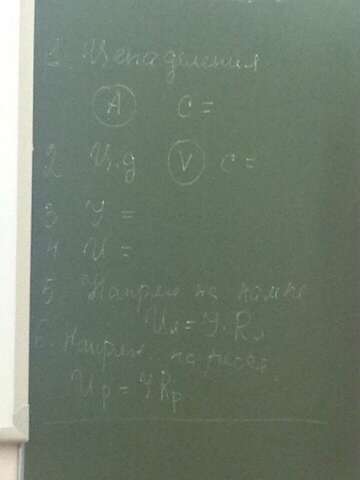 1. Цена деления
A C =
2 Ц.д V C =
3 У =
4 U =
5 Напряж на лампе
Uл = У · Rл
6. Напряж на реост
Uр = У Rр